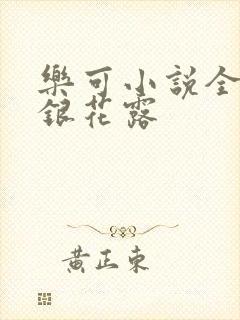 樂可小説全
銀花露
黃正東